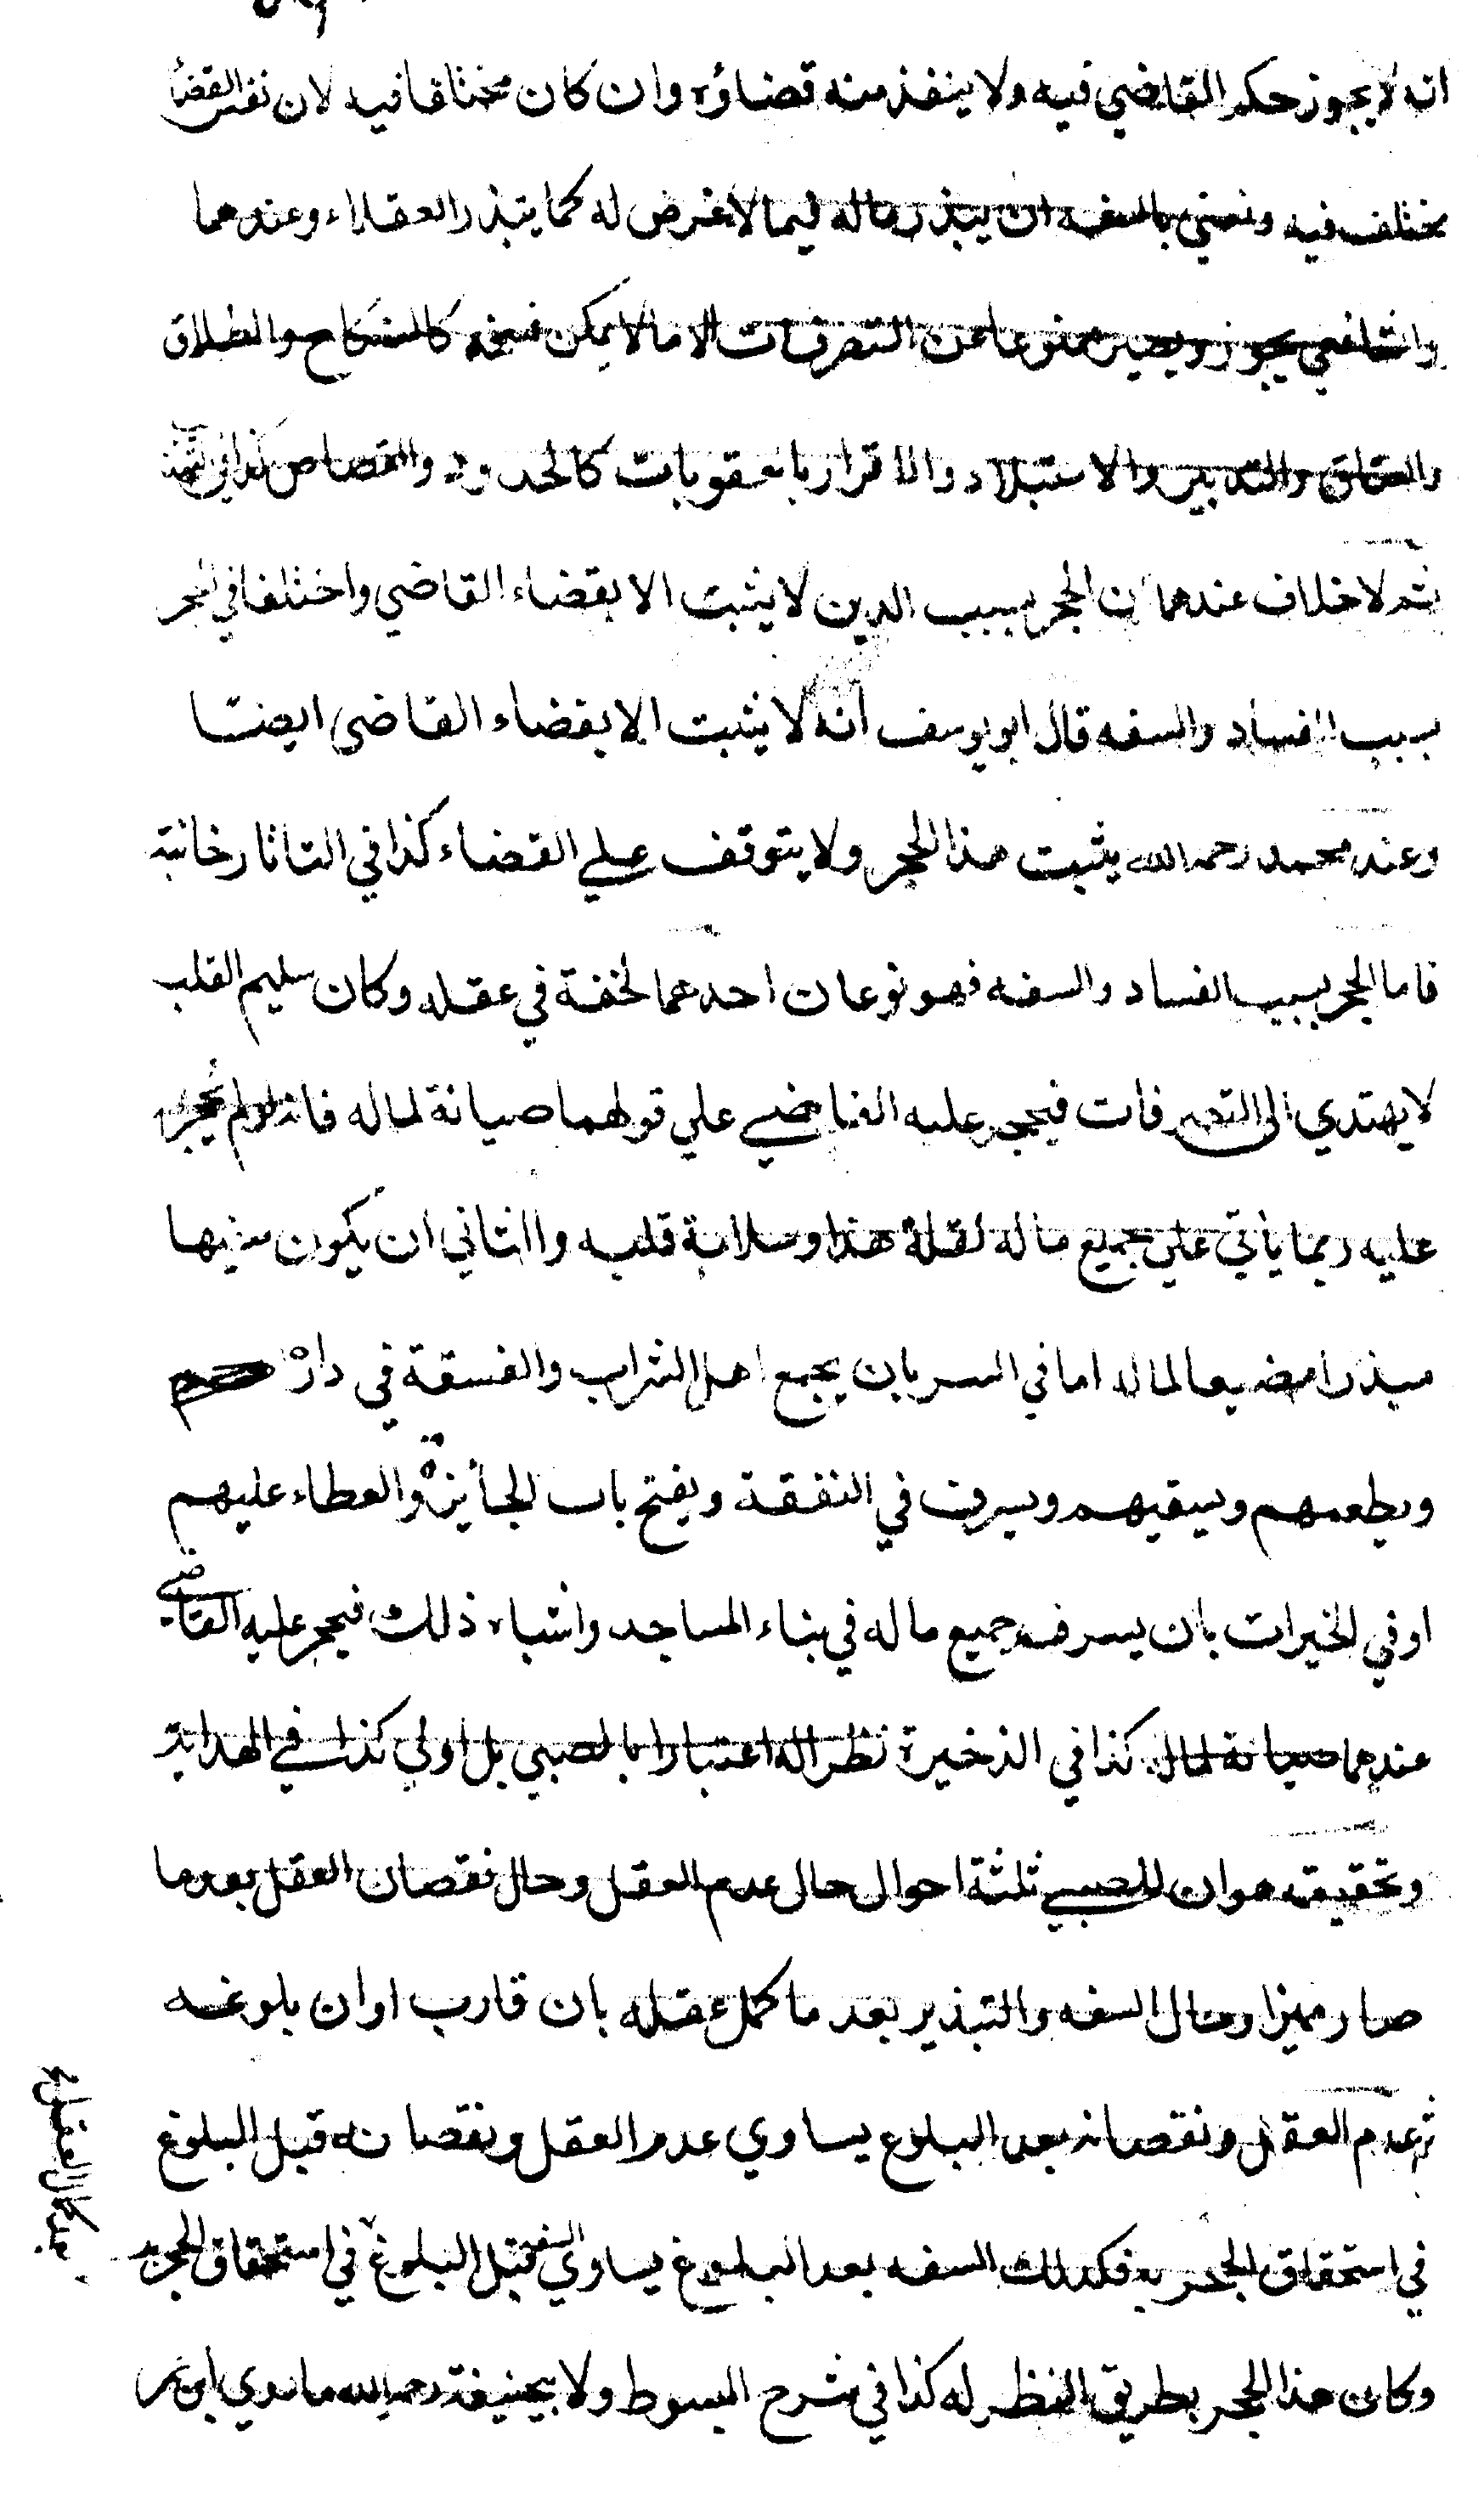 انه لا يجوز حكم القاضي فيه ولا ينفذ منه قضاؤه وان كان مختلفا فيه لان نفس القضأ
مختلف فيه ونعني بالسفه ان يبذر ماله فيما لا غرض له كما يتبذر العقلاء وعندهما
والشافعي يجوز ويصير ممنوعا عن التصرفات الا ما لا يمكن فسخه كالنكاح والطلاق
والعتاق والتدبير والاستيلاد والاقرار بالعقوبات كالحدود والقصاص كذا في
ثم لا خلاف عندهما ان الحجر بسبب الدين لا يثبت الا بقضاء القاضي واختلفا في الحجر
بسبب الفساد والسفه قال ابو يوسف انه لا يثبت الا بقضاء القاضي ايضا
وعند محمد رحمه الله يثبت هذا الحجر ولا يتوقف علي القضاء كذا في التاتارخانية
فاما الحجر بسبب الفساد والسفه فهو نوعان احدهما لخفة في عقله وكان سليم القلب
لا يهتدي الى التصرفات فيحجر عليه القاضي علي قولهما صيانة لماله فانه لو لم يحجر
عليه ربما ياتي علي جميع ماله لقلة هذا وسلامة قلبه والثاني ان يكون سفيها
مبذرا مضيعا لماله اما في السر بان يجمع اهل الشراب والفسقة في داره
ويطعمهم ويسقيهم ويسرف في النفقة ويفتح باب الجأيزة والعطاء عليهم
او في الخيرات بان يسرف جميع ماله في بناء المساجد واشباه ذلك فيحجر عليه القاضي
عندهما صيانة لماله كذا في الذخيرة نظرا له اعتبارا بالصبي بل اولي كذا في الهداية
وتحقيقه هو ان للصبي ثلثة احوال حال عدم العقل وحال نقصان العقل بعد ما
صار مميزا وحال السفه والتبذير بعد ما كمل عقله بان قارب اوان بلوغه
ثم عدم العقل ونقصانه بعد البلوغ يساوي عدم العقل ونقصانه قبل البلوغ
في استحقاق الحجر به فكذلك السفه بعد البلوغ يساوي السفه قبل البلوغ في استحقاق الحجر به
وكان هذا الحجر بطريق النظر له كذا في شرح المبسوط ولابيحنيفة رحمه الله ما روي ابن عمر